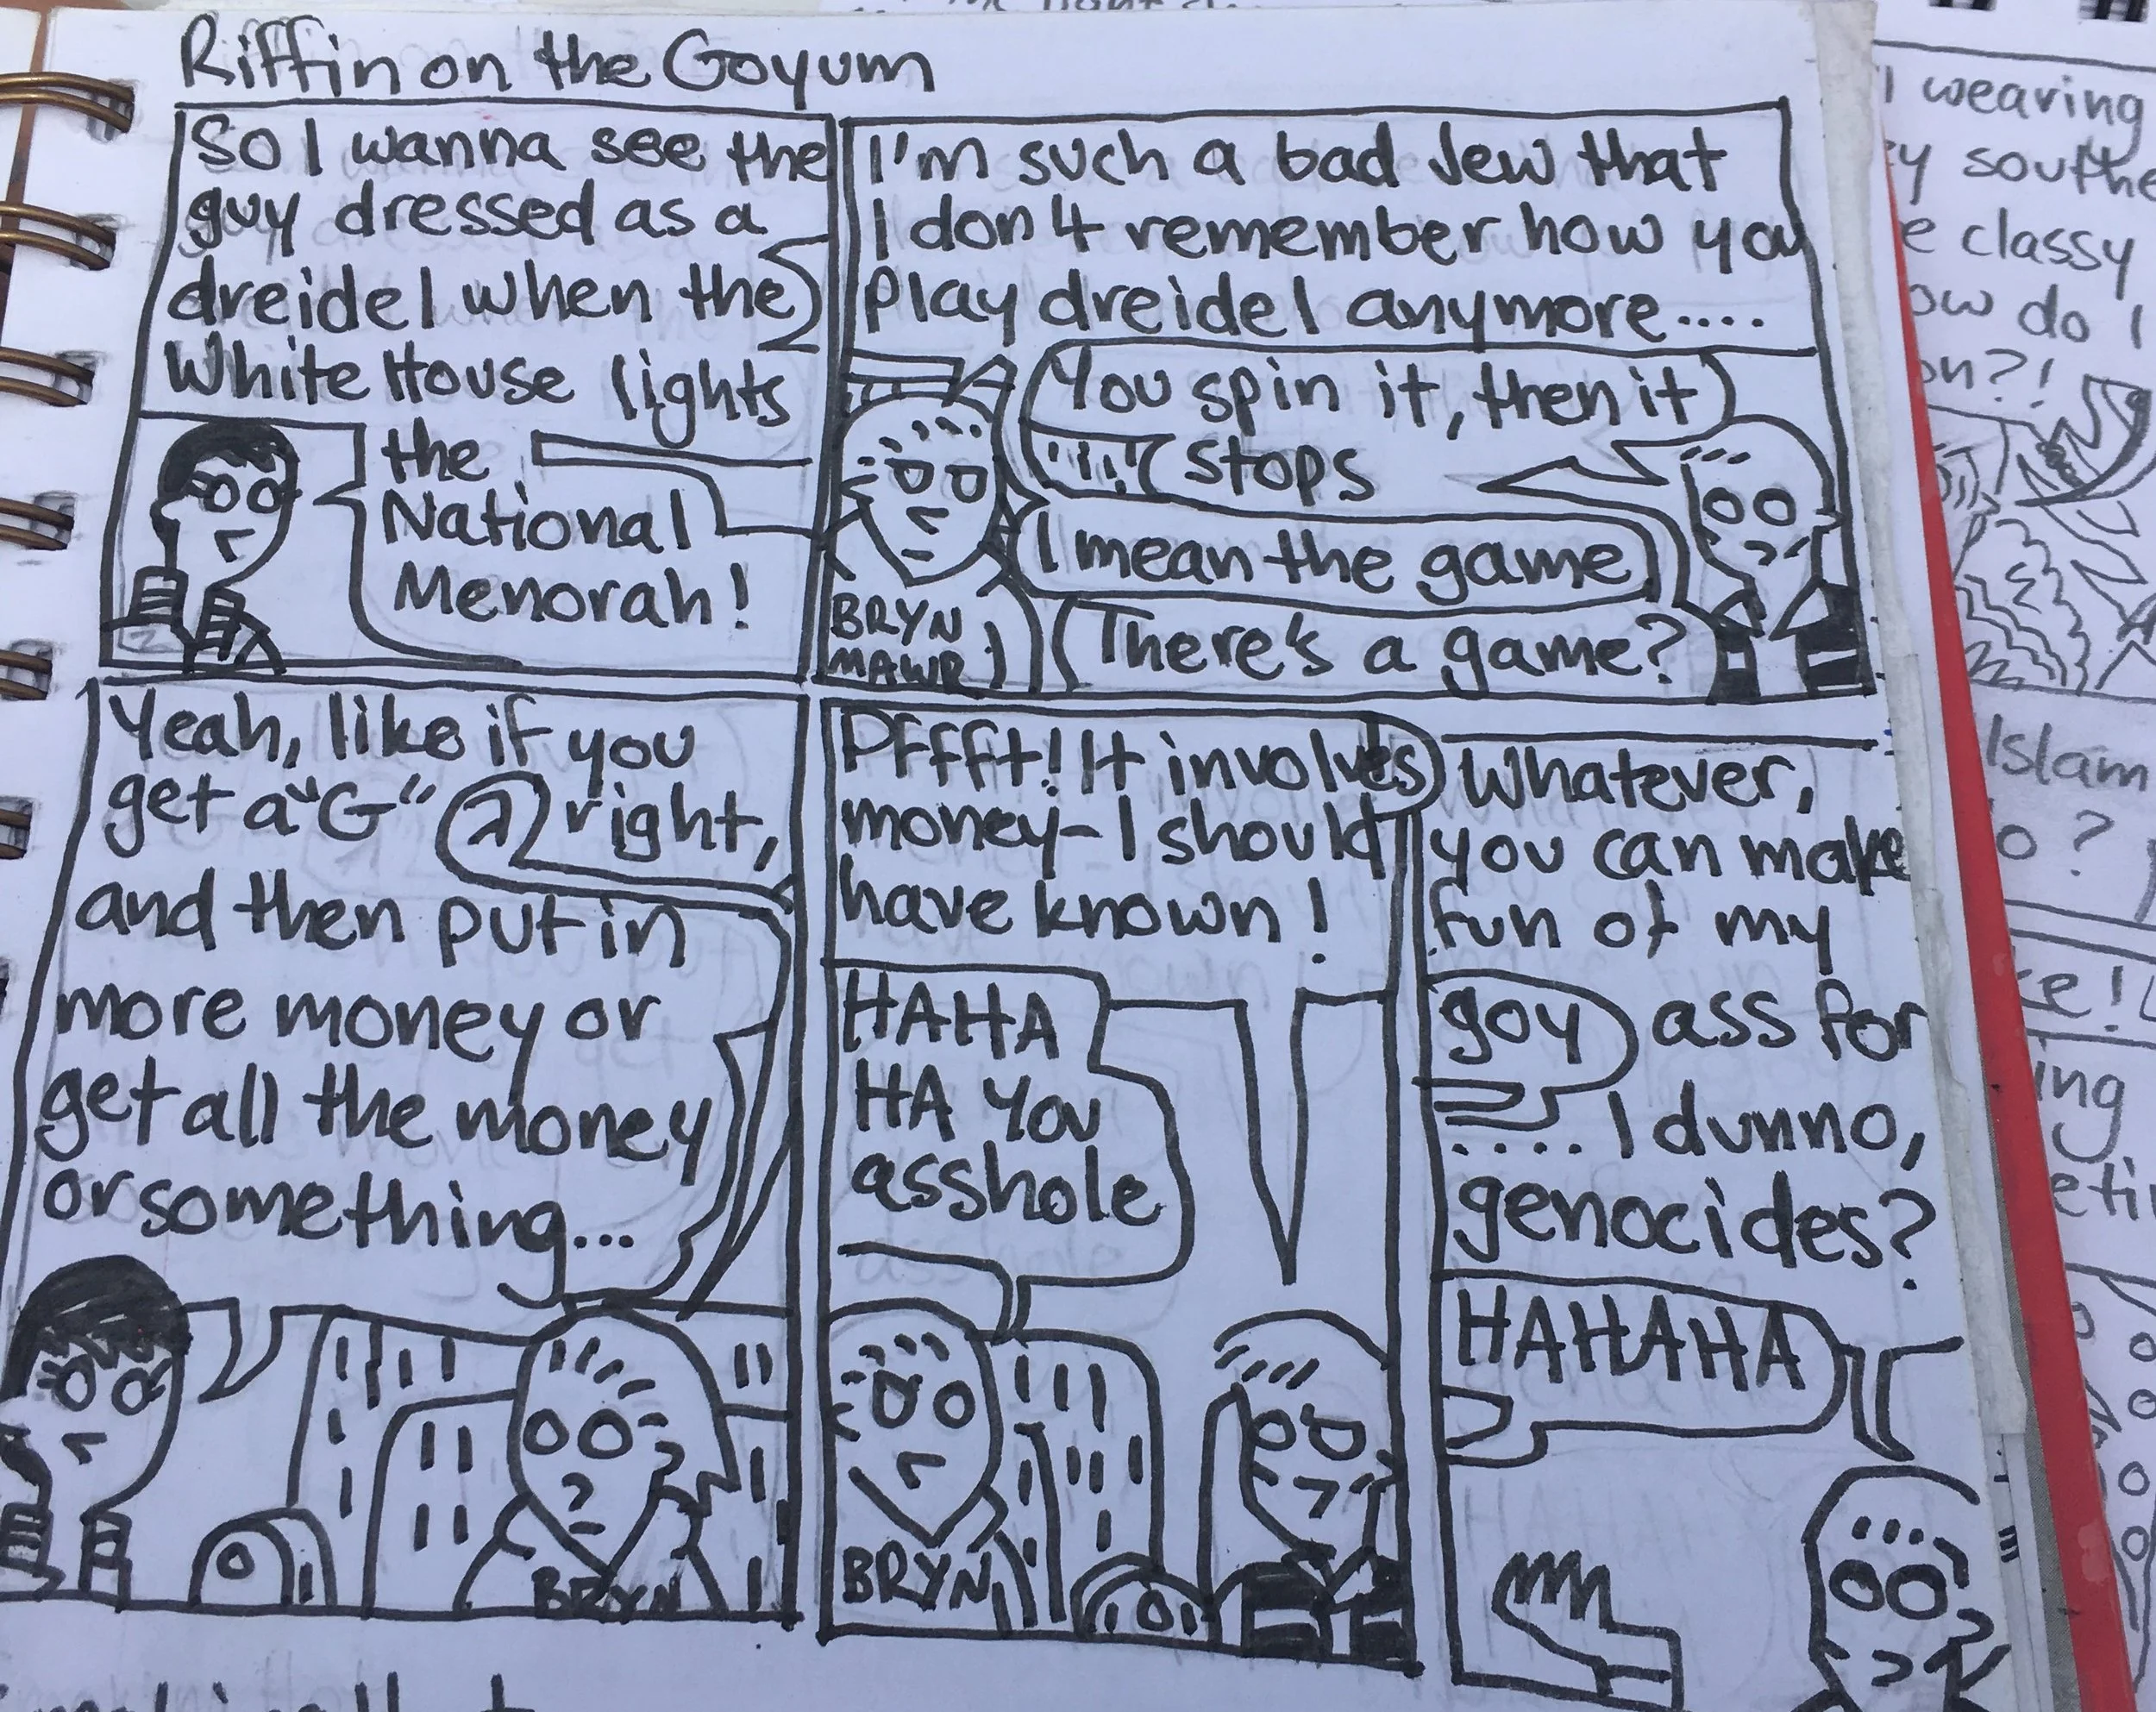 Riffin on the Goyum
So I wanna see the
guy dressed as a
dreidel when the
White House lights
the
National
Menorah!
I'm such a bad Jew that
I don't remember how you
play dreidel anymore....
You spin it, then it
stops
I mean the game
There's a game?
BRYN
MAWR
Yeah, like if you
get a "G" ג right,
and then put in
more money or
get all the money
or something...
BRYN
Pffft! It involves
money-I should
have known!
HAHA
HA You
asshole
BRYN
Whatever,
you can make
fun of my
goy ass for
....I dunno,
genocides?
HAHAHA
wearing
classy
do I
Islam
?